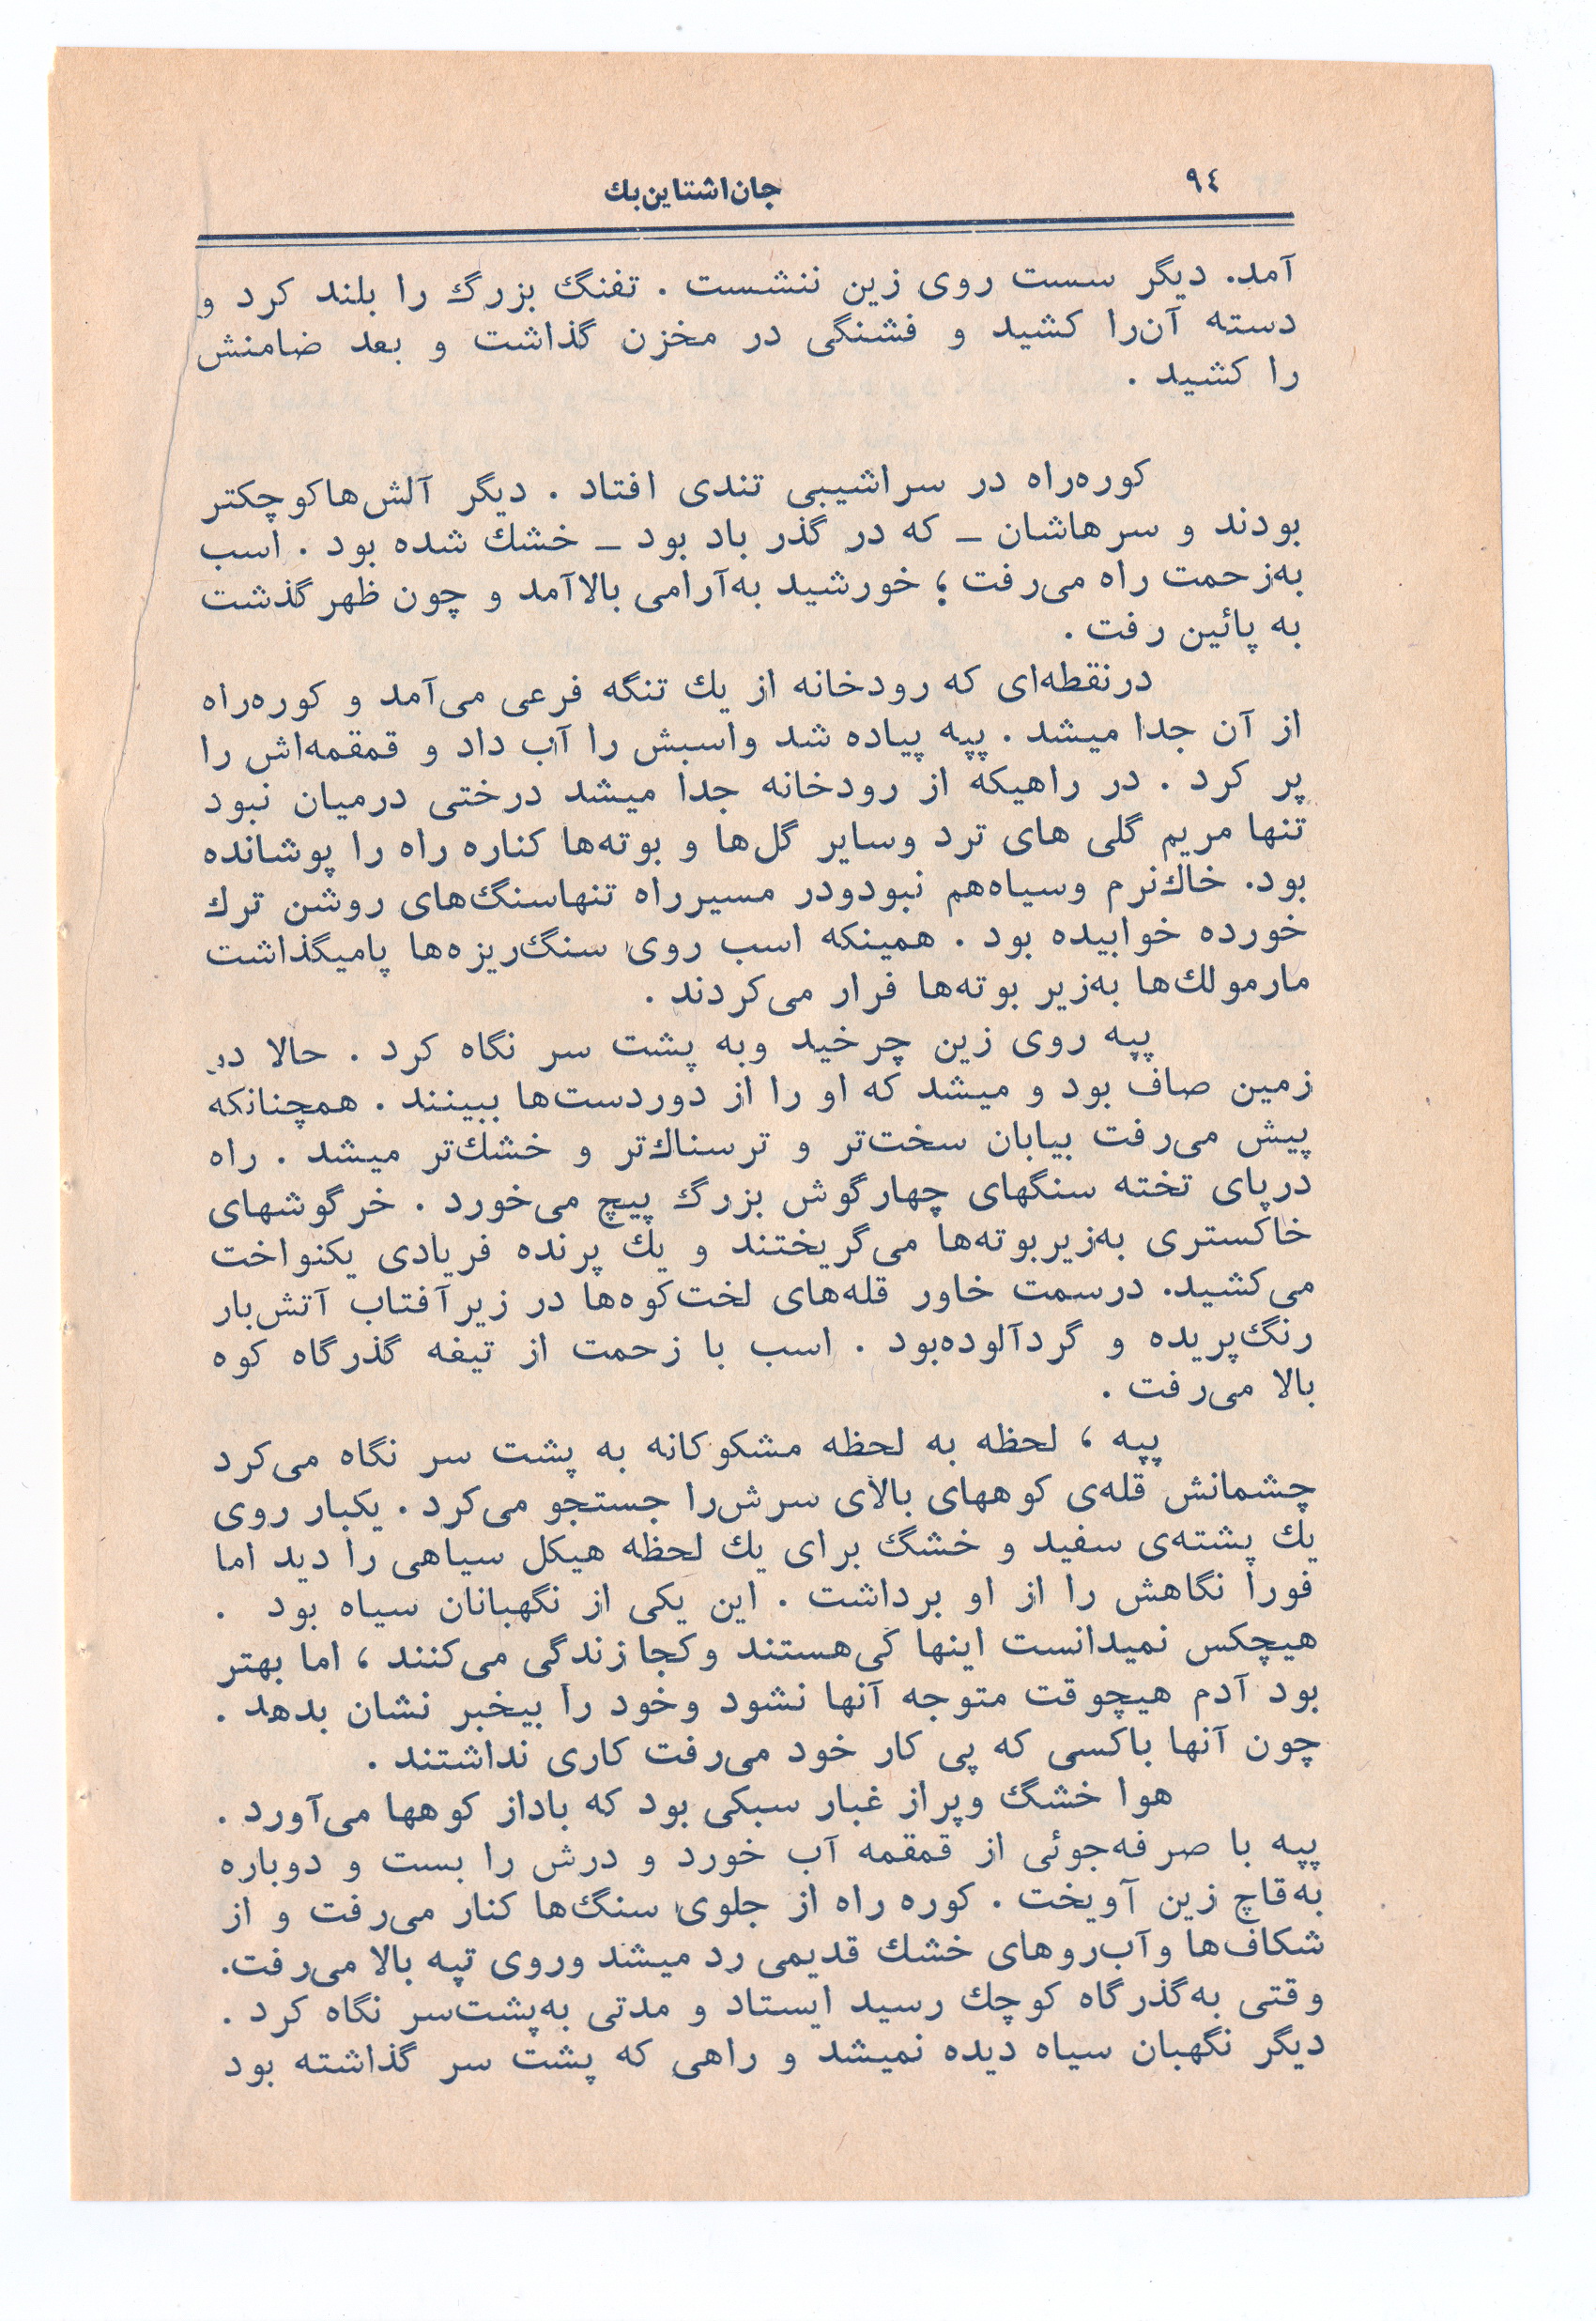 ۹٤
جان‌اشتاین‌بك
آمد. دیگر سست روی زین ننشست . تفنگ بزرگ را بلند کرد و
دسته آن‌را کشید و فشنگی در مخزن گذاشت و بعد ضامنش
را کشید .
کوره‌راه در سراشیبی تندی افتاد . دیگر آلش‌هاکوچکتر
بودند و سرهاشان ـ که در گذر باد بود ـ خشك شده بود . اسب
به‌زحمت راه می‌رفت ؛ خورشید به‌آرامی بالاآمد و چون ظهر گذشت
به پائین رفت .
درنقطه‌ای که رودخانه از یك تنگه فرعی می‌آمد و کوره‌راه
از آن جدا میشد . پپه پیاده شد واسبش را آب داد و قمقمه‌اش را
پر کرد . در راهیکه از رودخانه جدا میشد درختی درمیان نبود
تنها مریم گلی های ترد وسایر گل‌ها و بوته‌ها کناره راه را پوشانده
بود. خاك‌نرم وسیاه‌هم نبودودر مسیرراه تنهاسنگ‌های روشن ترك
خورده خوابیده بود . همینکه اسب روی سنگ‌ریزه‌ها پامیگذاشت
مارمولك‌ها به‌زیر بوته‌ها فرار می‌کردند .
پپه روی زین چرخید وبه پشت سر نگاه کرد . حالا در
زمین صاف بود و میشد که او را از دوردست‌ها ببینند . همچنانکه
پیش می‌رفت بیابان سخت‌تر و ترسناك‌تر و خشك‌تر میشد . راه
درپای تخته سنگهای چهارگوش بزرگ پیچ می‌خورد . خرگوشهای
خاکستری به‌زیربوته‌ها می‌گریختند و یك پرنده فریادی یکنواخت
می‌کشید. درسمت خاور قله‌های لخت‌کوه‌ها در زیرآفتاب آتش‌بار
رنگ‌پریده و گردآلوده‌بود . اسب با زحمت از تیغه گذرگاه کوه
بالا می‌رفت .
پپه ، لحظه به لحظه مشکوکانه به پشت سر نگاه می‌کرد
چشمانش قله‌ی کوههای بالای سرش‌را جستجو می‌کرد . یکبار روی
یك پشته‌ی سفید و خشگ برای یك لحظه هیکل سیاهی را دید اما
فورا نگاهش را از او برداشت . این یکی از نگهبانان سیاه بود .
هیچکس نمیدانست اینها کی‌هستند وکجا زندگی می‌کنند ، اما بهتر
بود آدم هیچوقت متوجه آنها نشود وخود را بیخبر نشان بدهد .
چون آنها باکسی که پی کار خود می‌رفت کاری نداشتند .
هوا خشگ وپراز غبار سبکی بود که باداز کوهها می‌آورد .
پپه با صرفه‌جوئی از قمقمه آب خورد و درش را بست و دوباره
به‌قاچ زین آویخت . کوره راه از جلوی سنگ‌ها کنار می‌رفت و از
شکاف‌ها وآب‌روهای خشك قدیمی رد میشد وروی تپه بالا می‌رفت.
وقتی به‌گذرگاه کوچك رسید ایستاد و مدتی به‌پشت‌سر نگاه کرد .
دیگر نگهبان سیاه دیده نمیشد و راهی که پشت سر گذاشته بود